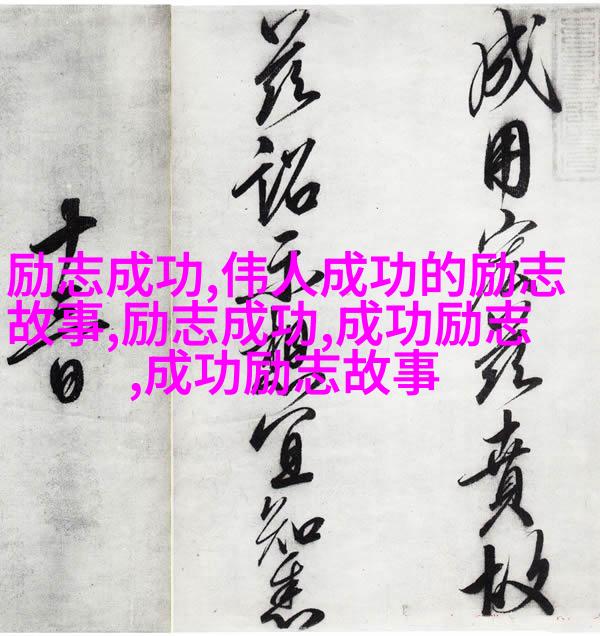 励志成功,伟人成功的励志
故事,励志成功,成功励志
,成功励志故事
成用宏茲賁故
茲詔示想宜知悉
十日